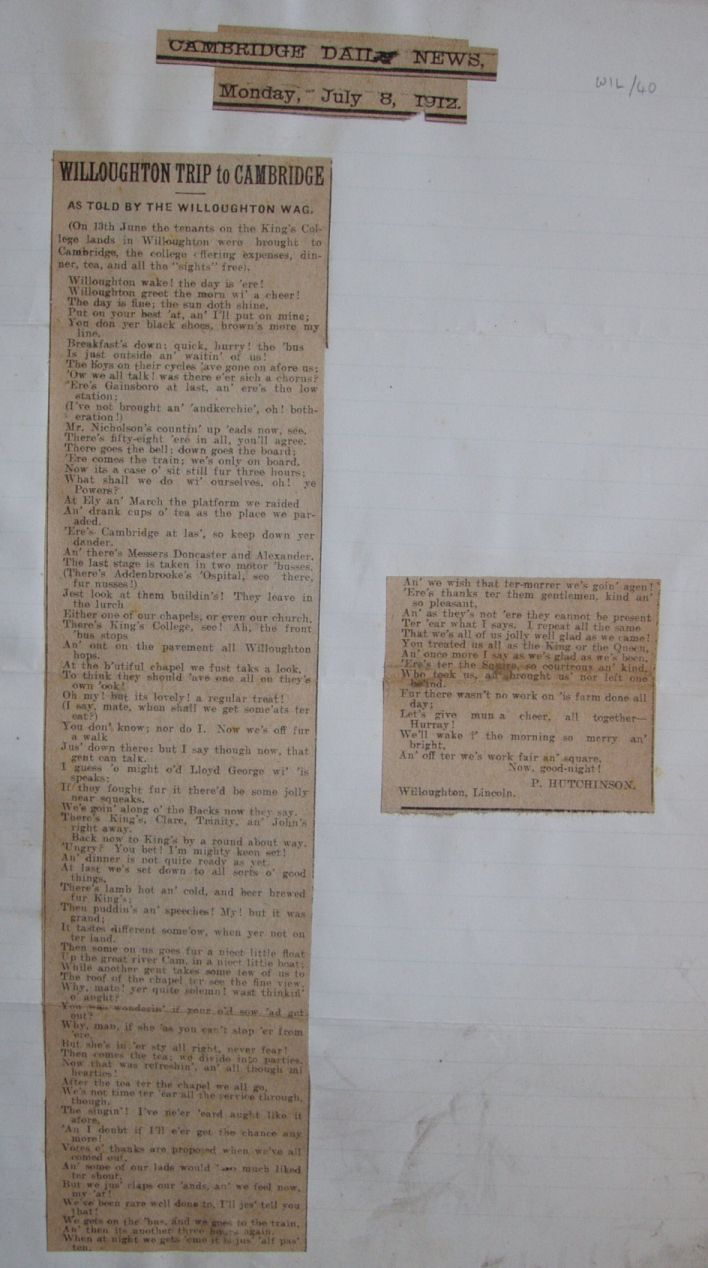 CAMBRIDGE DAILY NEWS,
Monday, July 8, 1912.
WIL/40
WILLOUGHTON TRIP to CAMBRIDGE
AS TOLD BY THE WILLOUGHTON WAG.
(On 13th June the tenants on the King's Col-
lege lands in Willoughton were brought to
Cambridge, the college offering expenses, din-
ner, tea, and all the "sights" free).
Willoughton wake! the day is 'ere!
Willoughton greet the morn wi' a cheer!
The day is fine; the sun doth shine,
Put on your best 'at, an' I'll put on mine;
You don yer black shoes, brown's more my
line.
Breakfast's down; quick, hurry! the 'bus
Is just outside an' waitin' of us!
The boys on their cycles 'ave gone on afore us;
'Ow we all talk! was there e'er sich a chorus?
'Ere's Gainsboro at last, an' ere's the low
station;
(I've not brought an' 'andkerchie', oh! both-
eration!)
Mr. Nicholson's countin' up 'eads now, see,
There's fifty-eight 'ere in all, you'll agree.
There goes the bell; down goes the board;
'Ere comes the train; we's only on board.
Now its a case o' sit still fur three hours;
What shall we do wi' ourselves, oh! ye
Powers?
At Ely an' March the platform we raided
An' drank cups o' tea as the place we par-
aded.
'Ere's Cambridge at las', so keep down yer
dander.
An' there's Messers Doncaster and Alexander.
The last stage is taken in two motor 'busses.
(There's Addenbrooke's 'Ospital, see there,
fur nusses!)
Jest look at them buildin's! They leave in
the lurch
Either one of our chapels, or even our church.
There's King's College, see! Ah, the front
'bus stops
An' out on the pavement all Willoughton
hops.
At the b'utiful chapel we fust takes a look,
To think they should 'ave one all on they's
own 'ook!
Oh my! but its lovely! a regular treat!
(I say, mate, when shall we get some'ats ter
eat?)
You don't know; nor do I. Now we's off fur
a walk
Jus' down there; but I say though now, that
gent can talk.
I guess 'e might o'd Lloyd George wi' 'is
speaks;
If they fought fur it there'd be some jolly
near squeaks.
We's goin' along o' the Backs now they say.
There's King's, Clare, Trinity, an' John's
right away.
Back now to King's by a round about way.
'Ungry? You bet! I'm mighty keen set!
An' dinner is not quite ready as yet.
At last we's set down to all sorts o' good
things,
There's lamb hot an' cold, and beer brewed
fur King's;
Then puddin's an' speeches! My! but it was
grand;
It tastes different some'ow, when yer not on
ter land.
Then some on us goes fur a nicet little float
Up the great river Cam, in a nicet little boat;
While another gent takes some tew of us to
The roof of the chapel ter see the fine view.
Why, mate! yer quite solemn! wast thinkin'
o' aught?
You was wonderin' if your o'd sow 'ad got
out?
Why, man, if she 'as you can't stop 'er from
'ere.
But she's in 'er sty all right, never fear!
Then comes the tea; we divide into parties,
Now that was refreshin', an' all though mi
hearties!
After the tea ter the chapel we all go,
We's not time ter 'ear all the service through,
though.
The singin'! I've ne'er 'eard aught like it
afore,
'An I doubt if I'll e'er get the chance any
more!
Votes o' thanks are proposed when we've all
comed out,
An' some of our lads would much liked
ter shout,
But we jus' claps our 'ands, an' we feel now,
my 'at!
We've been rare well done to, I'll jes' tell you
that!
We gets on the 'bus, and we goes to the train,
An' then its another three hours again.
When at night we gets 'ome it is jus' 'alf pas'
ten.
An' we wish that ter-morrer we's goin' agen!
'Ere's thanks ter them gentlemen, kind an'
so pleasant,
An' as they's not 'ere they cannot be present
Ter 'ear what I says, I repeat all the same
That we's all of us jolly well glad as we came!
You treated us all as the King or the Queen,
An' once more I say as we's glad as we's been.
'Ere's ter the Squire, so courteous an' kind,
Who took us, an' brought us' nor left one
be'ind.
Fur there wasn't no work on 'is farm done all
day;
Let's give mun a cheer, all together—
Hurray!
We'll wake i' the morning so merry an'
bright,
An' off ter we's work fair an' square.
Now, good-night!
P. HUTCHINSON.
Willoughton, Lincoln.